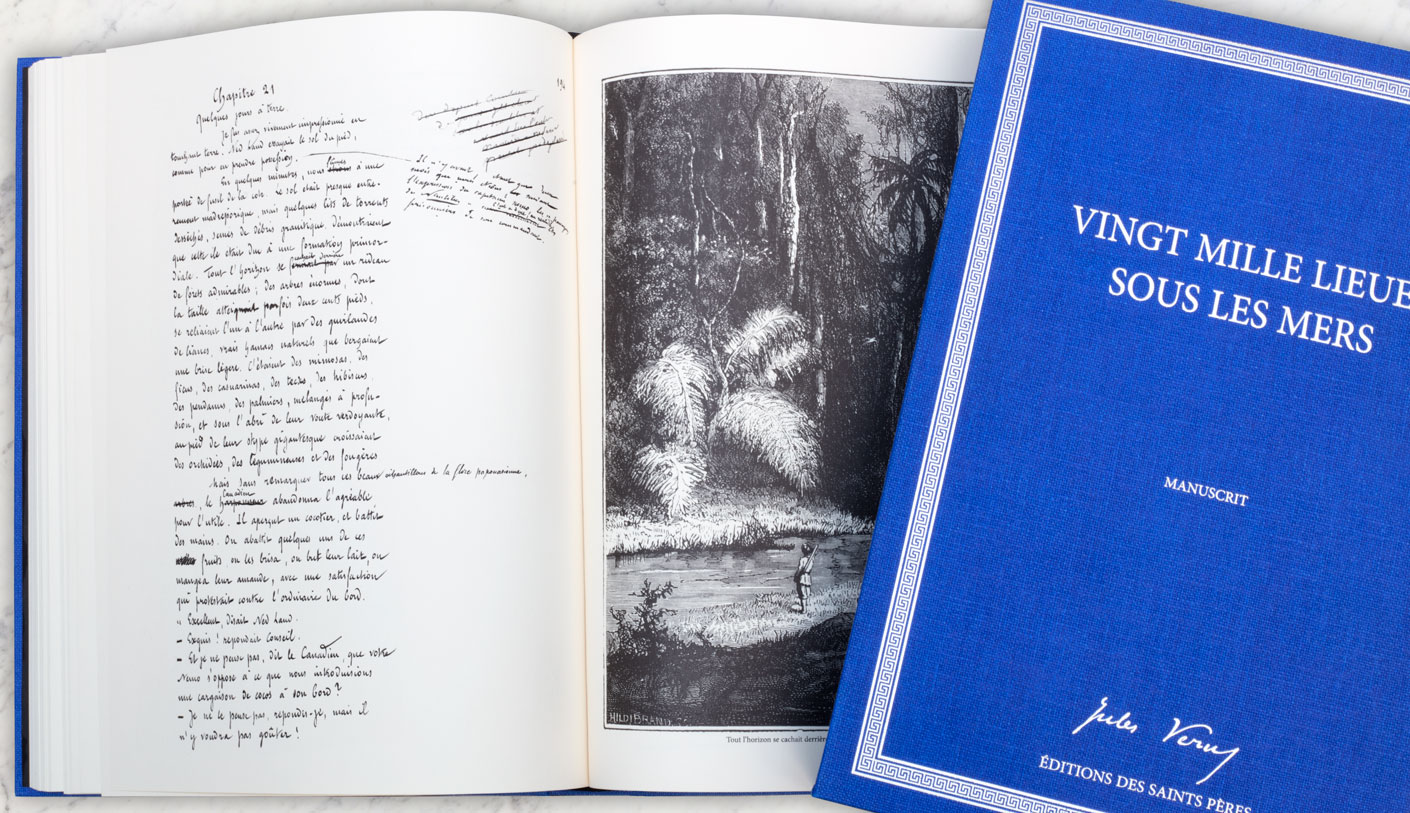 Chapitre 21
Quelques jours à terre.
Je fus assez vivement impressionné en
touchant terre. Ned Land essayait le sol du pied,
comme pour en prendre possession.
En quelques minutes, nous fûmes à une
portée de fusil de la côte. Le sol était presque entiè-
rement madréporique, mais quelques lits de torrents
desséchés, semés de débris granitiques démontraient
que cette île était due à une formation primor-
diale. Tout l'horizon se cachait derrière un rideau
de forêts admirables ; des arbres énormes, dont
la taille atteignait parfois deux cents pieds,
se reliaient l'un à l'autre par des guirlandes
de lianes, vrais hamacs naturels que berçaient
une brise légère. C'étaient des mimosas, des
ficus, des casuarinas, des tecks, des hibiscus,
des pendanus, des palmiers, mélangés à profu-
sion, et sous l'abri de leur voûte verdoyante,
au pied de leur stype gigantesque croissaient
des orchidées, des légumineuses et des fougères
Mais sans remarquer tous ces beaux échantillons de la flore papouasienne,
le Canadien abandonna l'agréable
pour l'utile. Il aperçut un cocotier, et battit
des mains. On abattit quelques uns de ces
fruits, on les brisa, on but leur lait, on
mangea leur amande, avec une satisfaction
qui protestait contre l'ordinaire du bord.
" Excellent, disait Ned Land.
- Exquis ! répondait Conseil.
- Et je ne pense pas, dit le Canadien, que votre
Nemo s'oppose à ce que nous introduisions
une cargaison de cocos à son bord ?
- Je ne le pense pas, répondis-je, mais il
n'y voudra pas goûter !
194
Il n'y avait
mois que nous
l'expression du capitaine Nemo, les
prisonniers de son commandant.
HILDIBRAND
Tout l'horizon se cachait derrière
VINGT MILLE LIEUE
SOUS LES MERS
MANUSCRIT
Jules Verne
ÉDITIONS DES SAINTS PÈRES